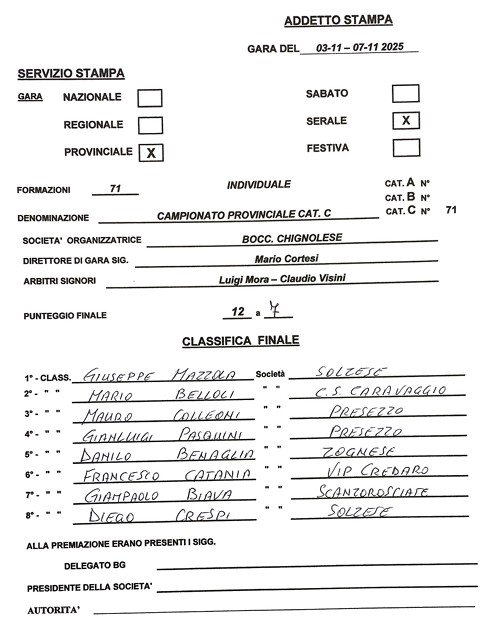 ADDETTO STAMPA
GARA DEL 03-11 – 07-11 2025
SERVIZIO STAMPA
GARA NAZIONALE SABATO
REGIONALE SERALE X
PROVINCIALE X FESTIVA
FORMAZIONI 71 INDIVIDUALE CAT. A N°
CAT. B N°
DENOMINAZIONE CAMPIONATO PROVINCIALE CAT. C CAT. C N° 71
SOCIETA' ORGANIZZATRICE BOCC. CHIGNOLESE
DIRETTORE DI GARA SIG. Mario Cortesi
ARBITRI SIGNORI Luigi Mora – Claudio Visini
PUNTEGGIO FINALE 12 a 7
CLASSIFICA FINALE
1° - CLASS. GIUSEPPE MAZZOLA Società SOLZESE
2° - " " MARIO BELLOLI " " C.S. CARAVAGGIO
3° - " " MAURO COLLEONI " " PRESEZZO
4° - " " GIANLUIGI PASQUINI " " PRESEZZO
5° - " " DANILO BENAGLIA " " ZOGNESE
6° - " " FRANCESCO CATANIA " " VIP CREDARO
7° - " " GIAMPAOLO BIAVA " " SCANZOROSCIATE
8° - " " DIEGO CRESPI " " SOLZESE
ALLA PREMIAZIONE ERANO PRESENTI I SIGG.
DELEGATO BG
PRESIDENTE DELLA SOCIETA'
AUTORITA'